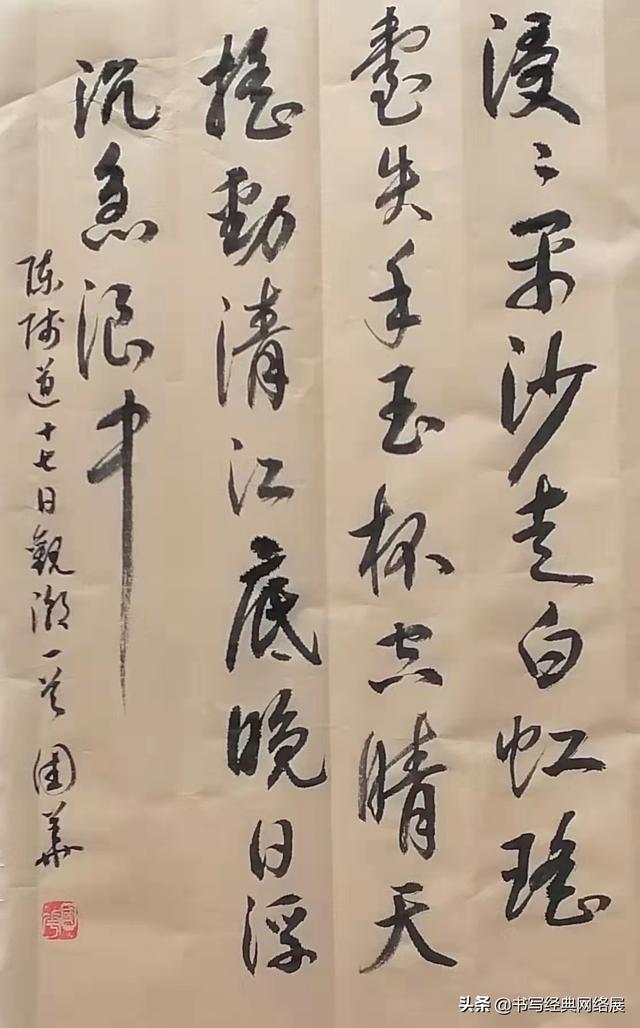 漫〻平沙走白虹瑶
臺失手玉杯空晴天
摇動清江底晚日浮
沉急浪中
陈师道十七日觀潮一首 國華
國華
头条 @书写经典网络展